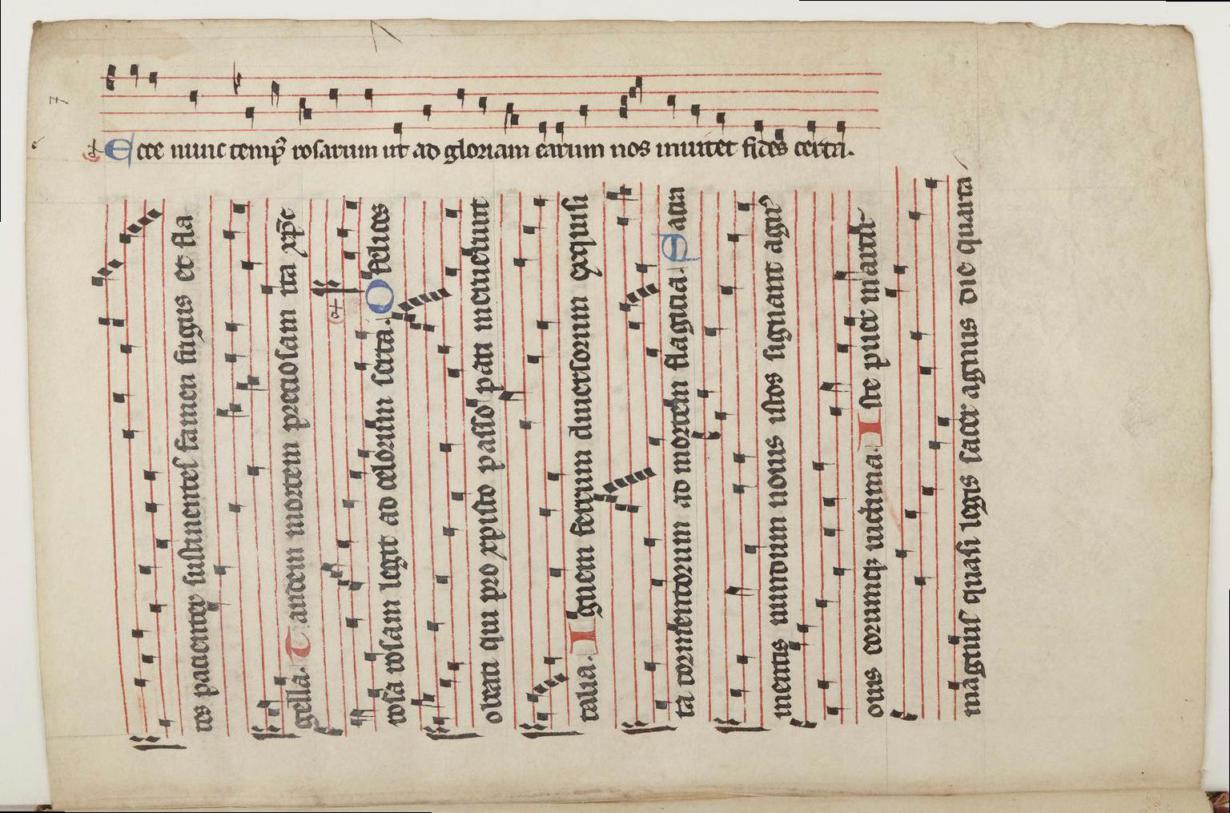 Ecce nunc temp᷒ rosarum ut ad gloriam earum nos inuitet fides certa.
tes pacienter sustinentes famen frigus et fla
gella. Tandem mortem preciosam ita xp̄c
rosa rosam legit ad celorum serta. O felices
oblati qui pro xpisto passo pati meruerunt
talia. Ignem ferrum diuersorum exquisi
ta tormentorum ad mortem flagicia. Sacra
mentis mundum nouus istos signant agn᷒
ouis eorumq; uictima. Iste puer martir
magnus quasi legis sacer agnus die quarta